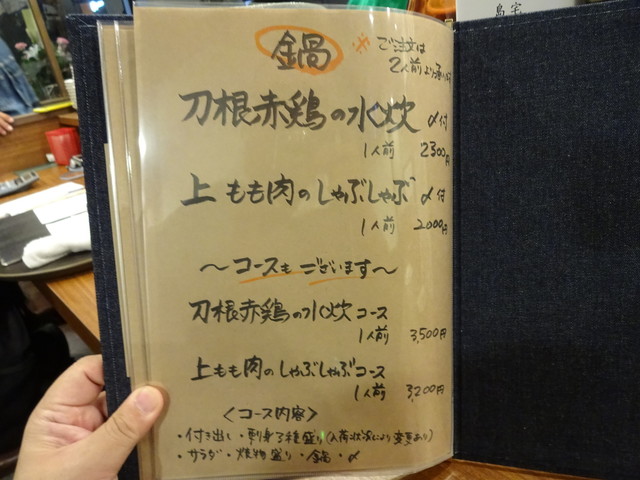 宅
島
鍋
※ ご注文は
2人前より承ります
刀根赤鶏の水炊 〆付
1人前 2300円
上もも肉のしゃぶしゃぶ 〆付
1人前 2000円
～コースもございます～
刀根赤鶏の水炊コース
1人前 3,500円
上もも肉のしゃぶしゃぶコース
1人前 3,200円
〈コース内容〉
・付き出し・刺身3種盛り(入荷状況により変更あり)
・サラダ・焼物盛り・鍋・〆